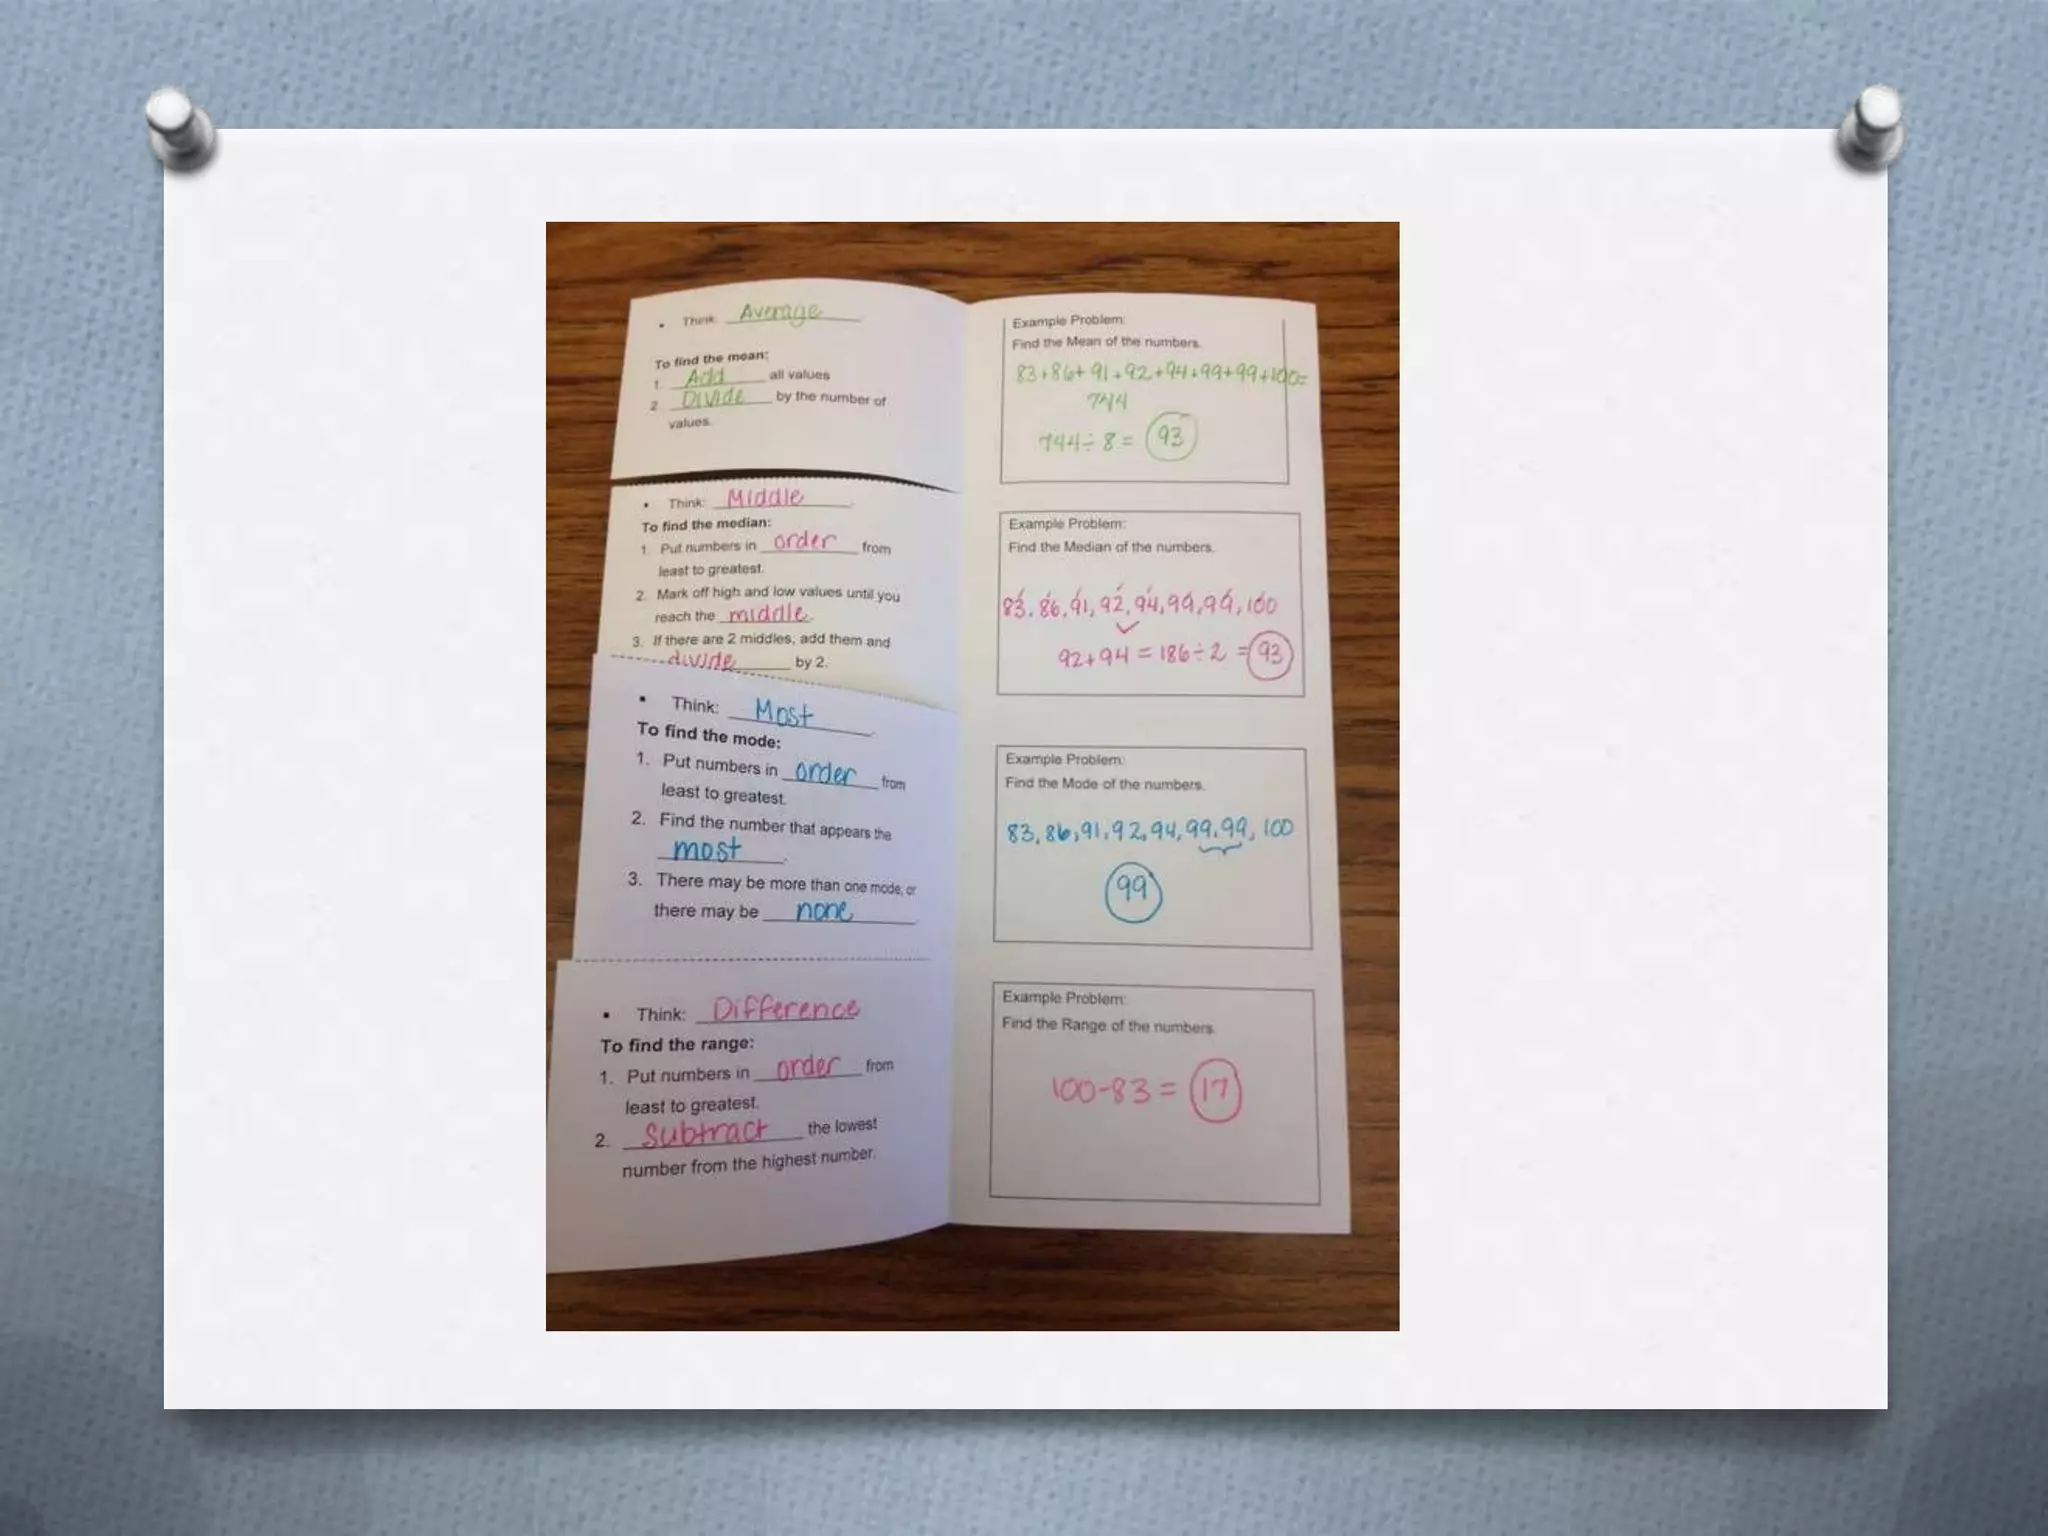 • Think: Average
To find the mean:
1. Add all values
2. Divide by the number of
values.
Example Problem:
Find the Mean of the numbers.
83+86+91+92+94+99+99+100=
744
744÷8= 93
• Think: Middle.
To find the median:
1. Put numbers in order from
least to greatest.
2. Mark off high and low values until you
reach the middle.
3. If there are 2 middles, add them and
divide by 2.
Example Problem:
Find the Median of the numbers.
83, 86, 91, 92, 94, 99, 99, 100
92+94 = 186÷2 = 93
• Think: Most.
To find the mode:
1. Put numbers in order from
least to greatest.
2. Find the number that appears the
most.
3. There may be more than one mode, or
there may be none
Example Problem:
Find the Mode of the numbers.
83, 86, 91, 92, 94, 99, 99, 100
99
• Think: Difference
To find the range:
1. Put numbers in order from
least to greatest.
2. Subtract the lowest
number from the highest number.
Example Problem:
Find the Range of the numbers.
100-83 = 17